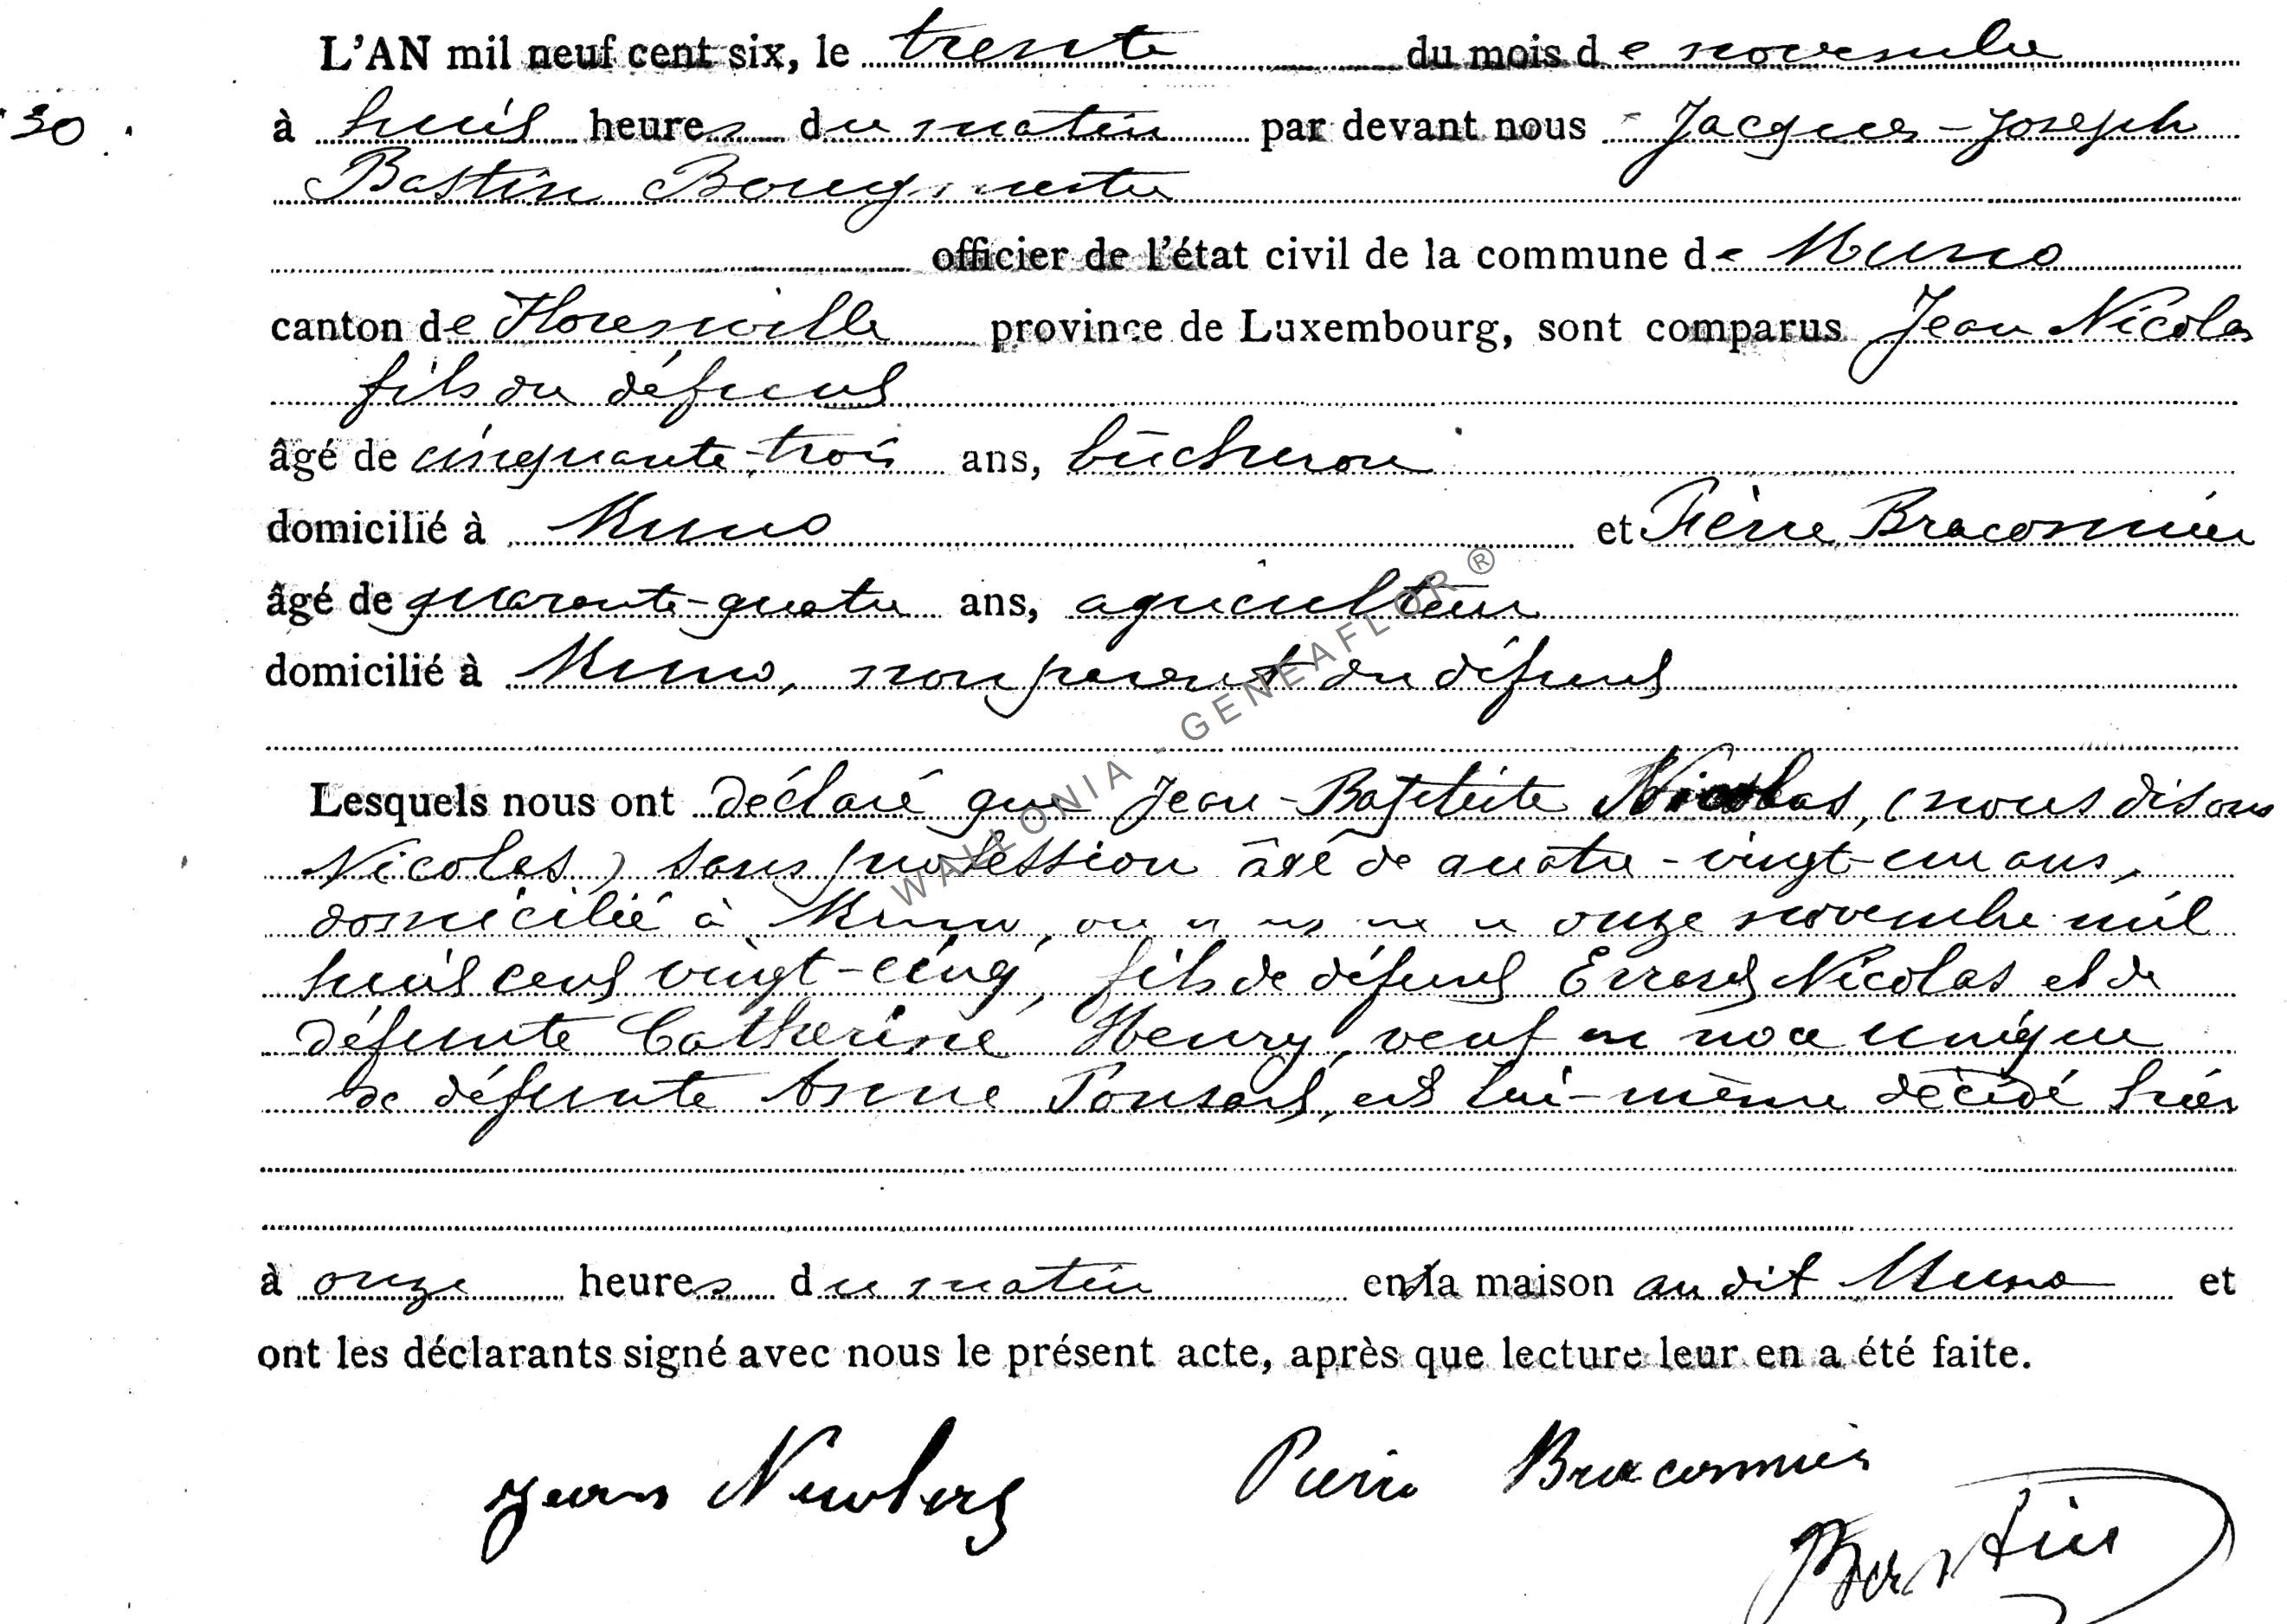 L'AN mil neuf cent six, le trente du mois de novembre
30. à huit heures du matin par devant nous Jacques-Joseph
Bastin Bourgmestre
officier de l'état civil de la commune de Muno
canton de Florenville province de Luxembourg, sont comparus Jean Nicolas
fils du défunt
âgé de cinquante-trois ans, bûcheron
domicilié à Muno et Pierre Braconnier
âgé de quarante-quatre ans, agriculteur
domicilié à Muno, non parent du défunt
Lesquels nous ont déclaré que Jean-Baptiste Nicolas, (nous disons
Nicolas) sans profession âgé de quatre-vingt-un ans,
domicilié à Muno, onze novembre mil
huit cent vingt-cinq, fils de défunt Nicolas et de
défunte Catherine Henry, veuf en noce unique
de défunte Anne Ponsard, est lui-même décédé hier
à onze heures du matin en sa maison au dit Muno et
ont les déclarants signé avec nous le présent acte, après que lecture leur en a été faite.
Jean Pierre Braconnier
Bastin
WALLONIA - GENEAFLOR ®